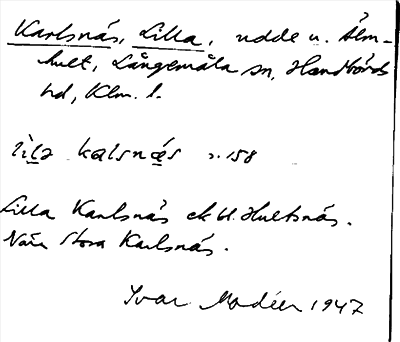 Karlsnäs, Lilla, udde u. Älm-
hult, Långemåla sn, Handbörds
hd, Klm. l.
lila kalsnäs s. 158
Lilla Karlsnäs ek U. Hultsnäs.
När Stora Karlsnäs.
Ivar Modéer 1947